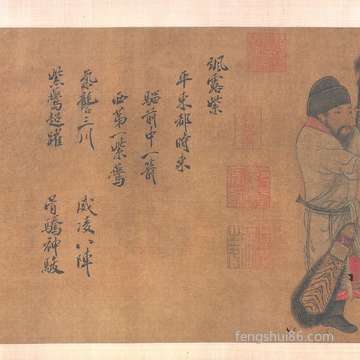 颯露紫
平東都時乘
騮前中一箭
西第一紫鷰
氣讋三川 威凌八陣
紫鷰超躍 骨騰神駿
fengshui86.com